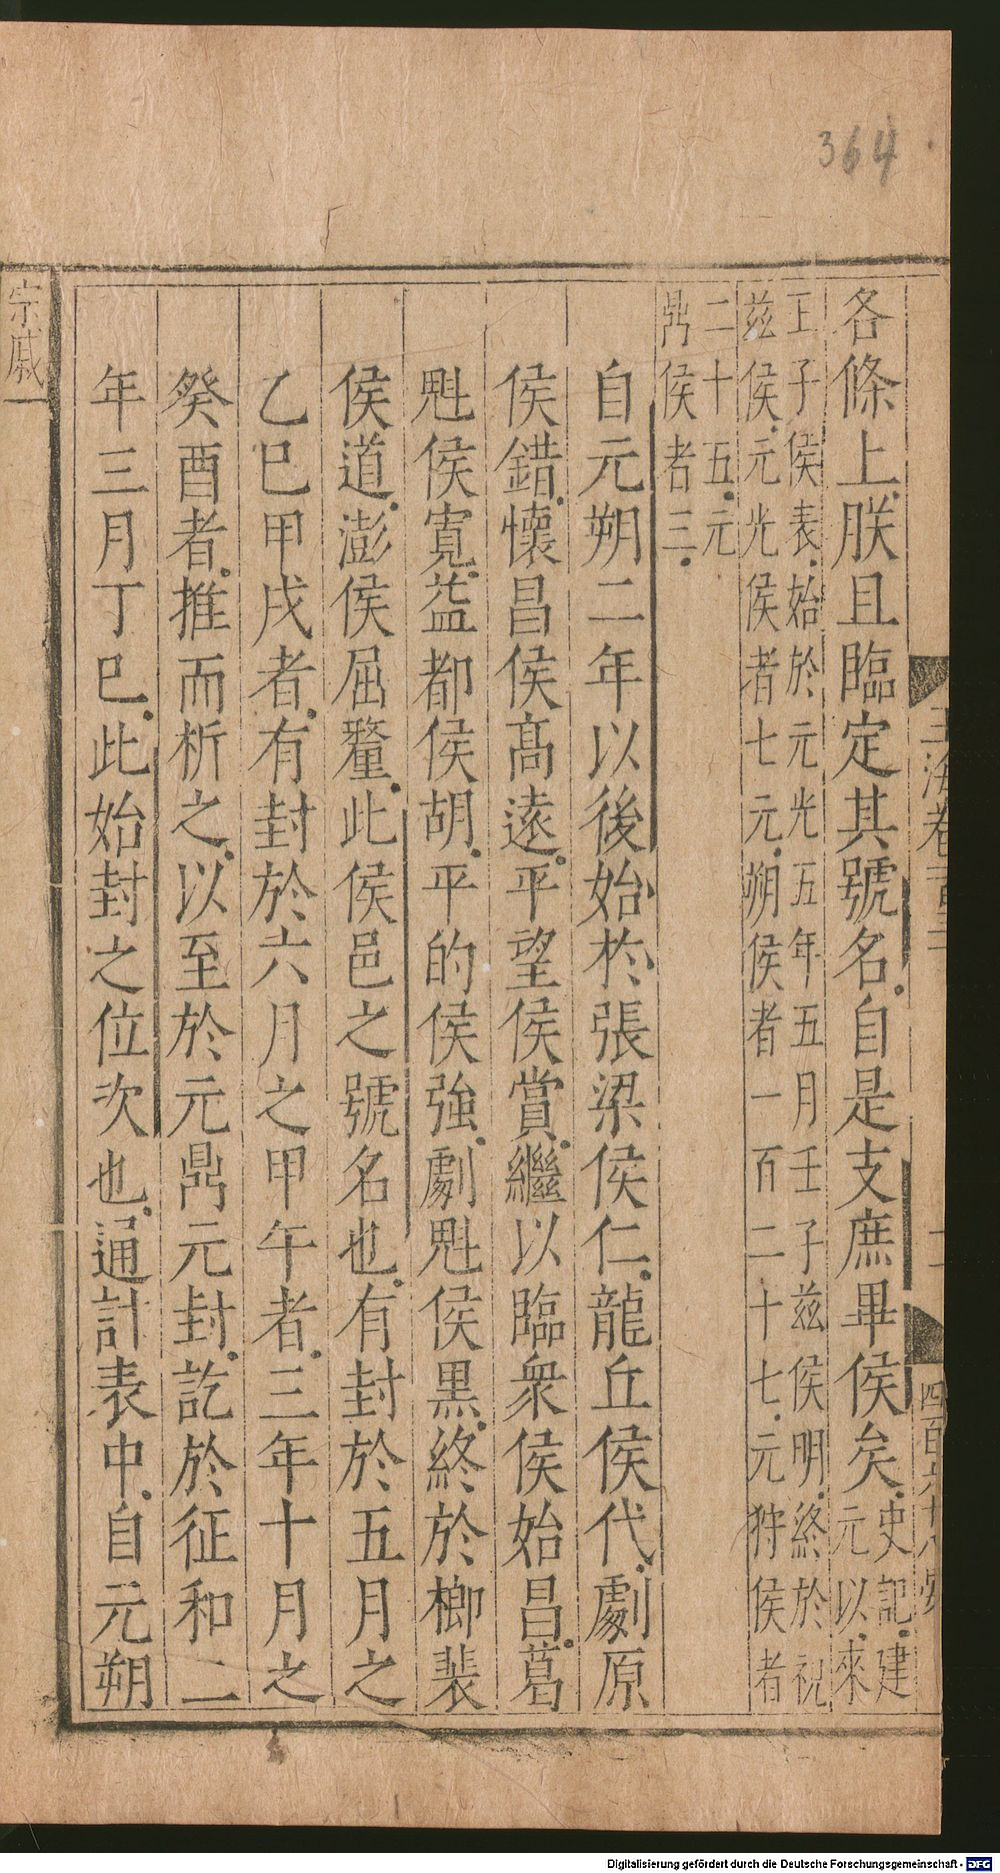 364
玉海卷一百三十
二
各條上朕且臨定其號名自是支庶畢侯矣史記建元以來
王子侯表始於元光五年五月壬子兹侯明終於祝
兹侯元光侯者七元朔侯者一百二十七元狩侯者
二十五元
鼎侯者三
自元朔二年以後始於張梁侯仁龍丘侯代劇原
侯錯懷昌侯高遠平望侯賞繼以臨衆侯始昌葛
魁侯寛益都侯胡平的侯強劇魁侯黒終於榔裴
侯道澎侯屈氂此侯邑之號名也有封於五月之
乙巳甲戌者有封於六月之甲午者三年十月之
癸酉者推而析之以至於元鼎元封訖於征和二
年三月丁巳此始封之位次也通計表中自元朔
宗戚一
Digitalisierung gefördert durch die Deutsche Forschungsgemeinschaft - DFG